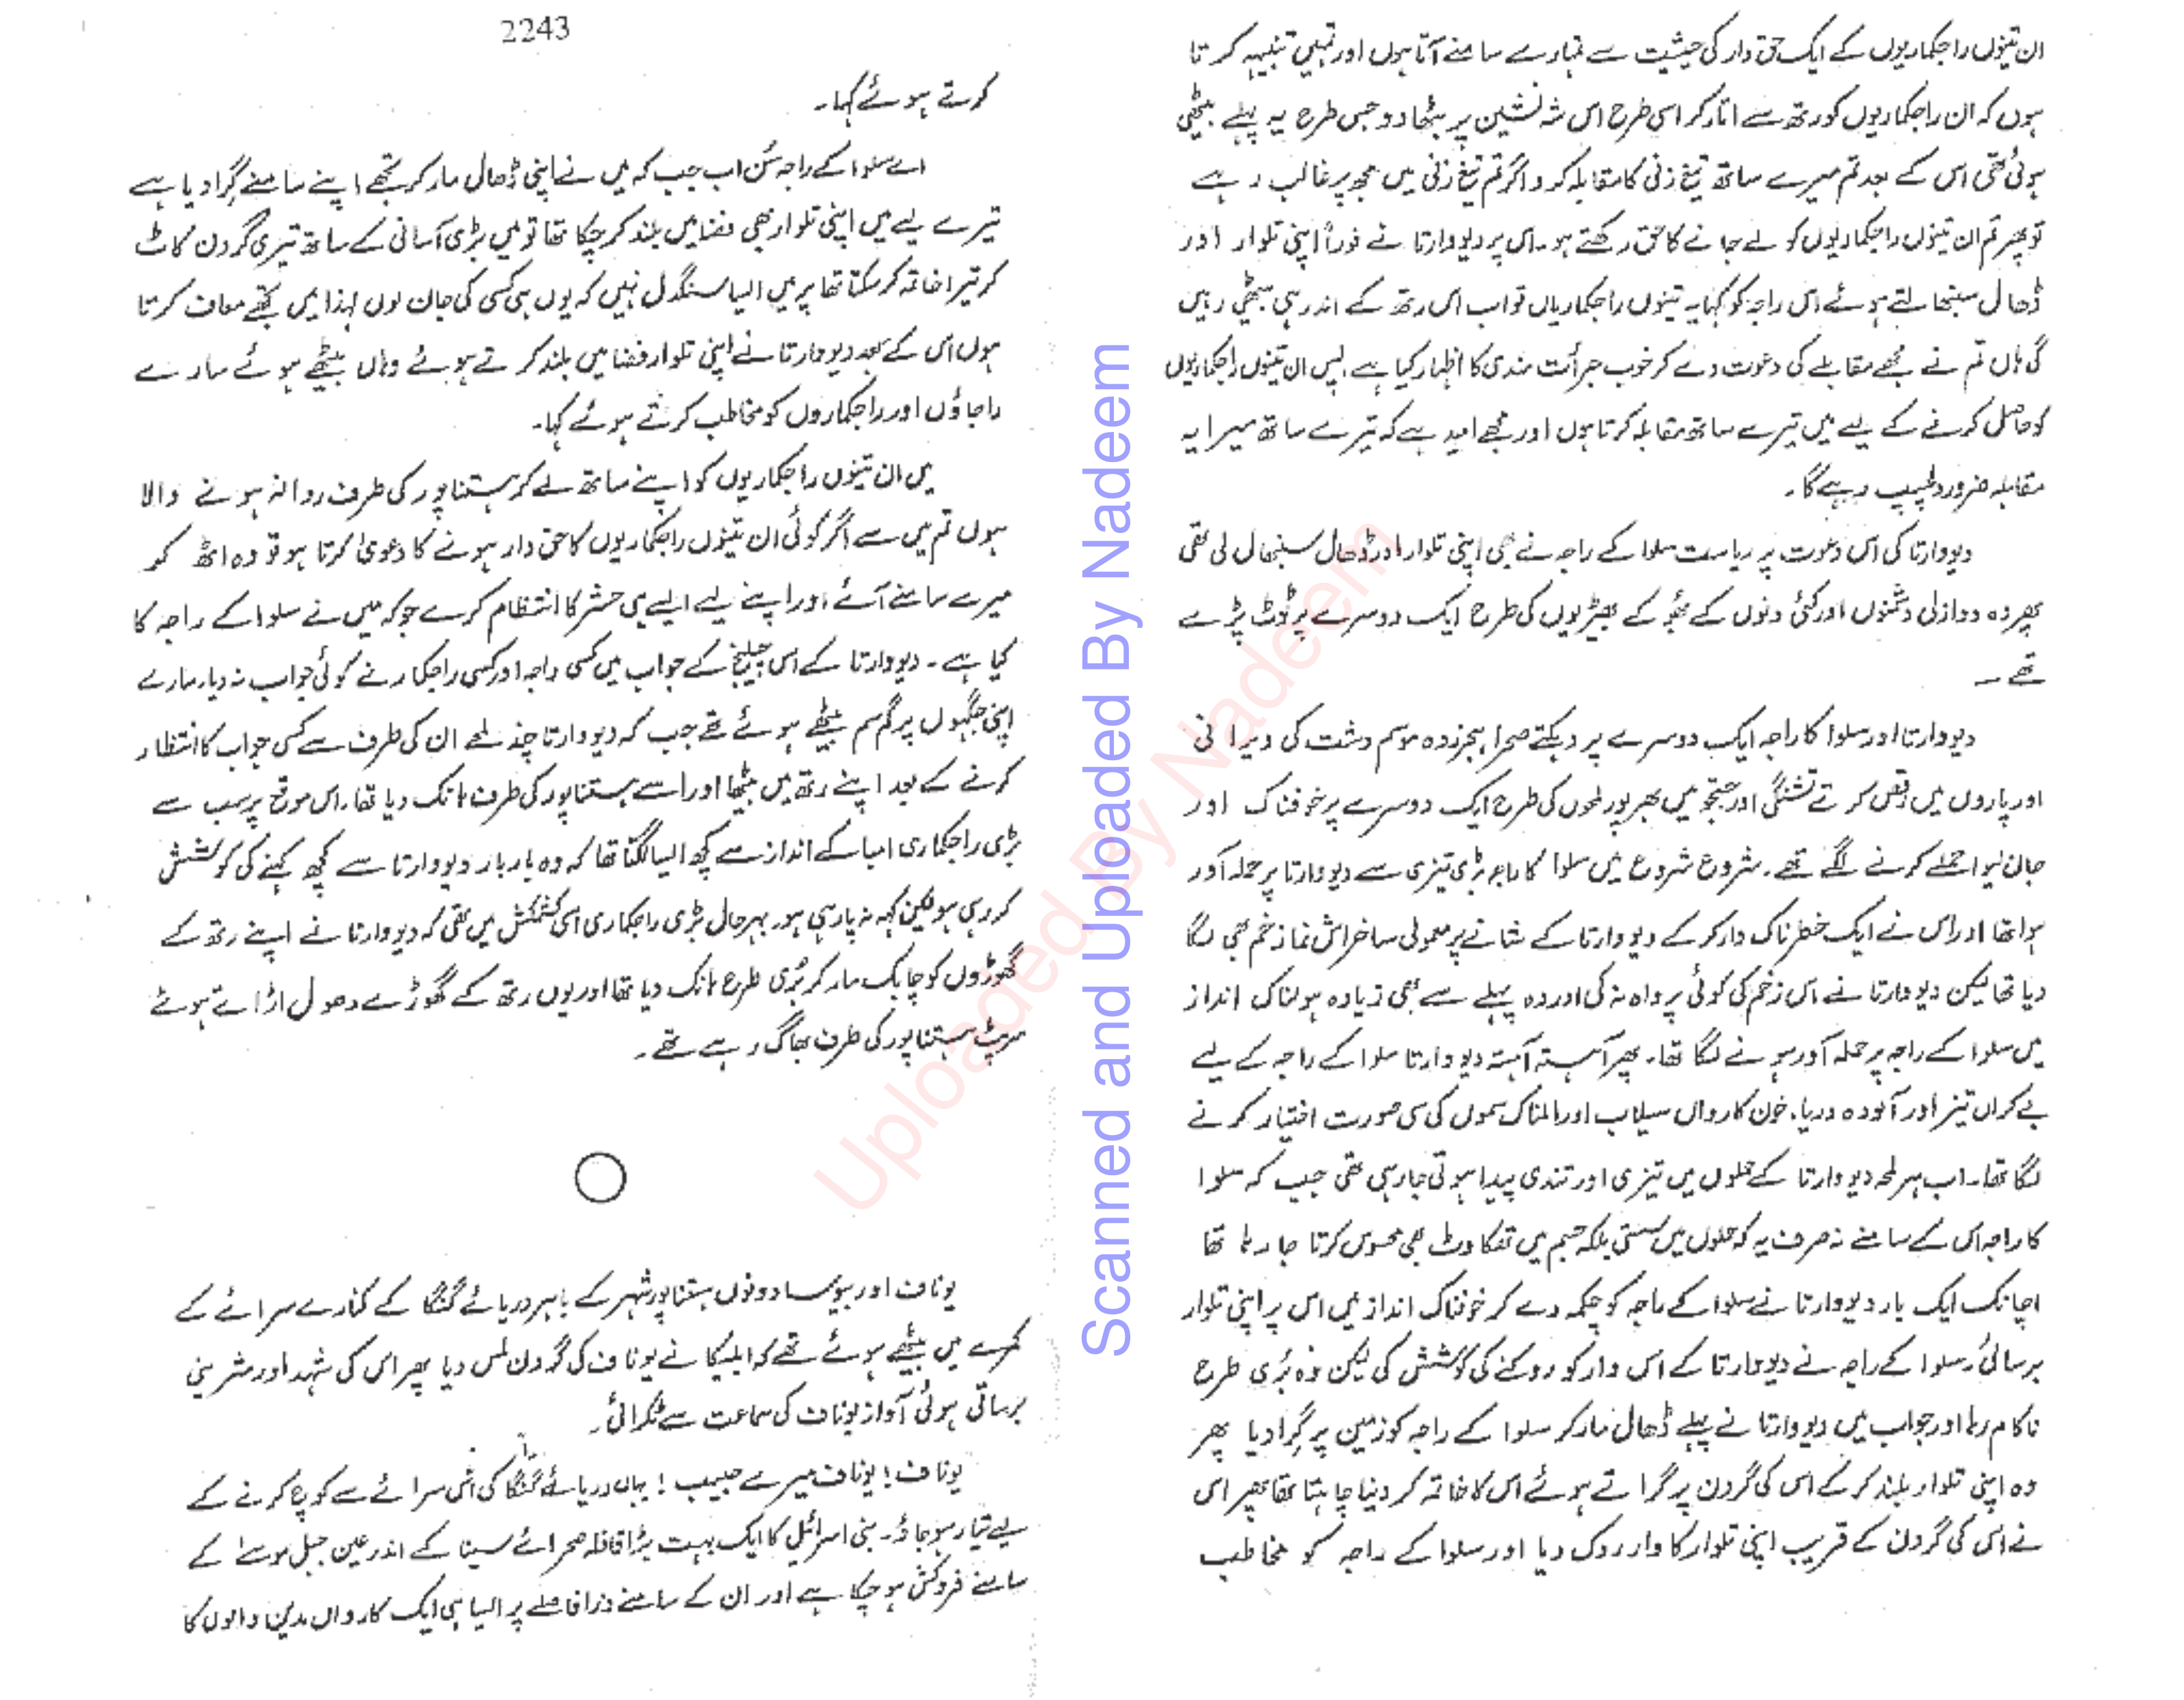 ان تینوں راجکماریوں کے ایک حق دار کی حیثیت سے تمہارے سامنے آتا ہوں اور تمہیں تنبیہہ کرتا
ہوں کہ ان راجکماریوں کو رتھ سے اتار کر اسی طرح اس شہ نشین پر بٹھا دو جس طرح یہ پہلے بیٹھی
ہوئی تھی اس کے بعد تم میرے ساتھ تیغ زنی کا مقابلہ کرو اگر تم تیغ زنی میں مجھ پر غالب رہے
تو پھر تم ان تینوں راجکماریوں کو لے جانے کا حق رکھتے ہو۔ اس پر دیووارتا نے فوراً اپنی تلوار اور
ڈھال سنبھالتے ہوئے اس راجہ کو کہا یہ تینوں راجکماریاں تو اب اس رتھ کے اندر ہی بیٹھی رہیں
گی ہاں تم نے مجھے مقابلے کی دعوت دے کر خوب جرأت مندی کا اظہار کیا ہے پس ان تینوں راجکماریوں
کو حاصل کرنے کے لیے میں تیرے ساتھ مقابلہ کرتا ہوں اور مجھے امید ہے کہ تیرے ساتھ میرا یہ
مقابلہ ضرور دلچسپ رہے گا۔
دیووارتا کی اس دعوت پر ریاست سلوا کے راجہ نے بھی اپنی تلوار اور ڈھال سنبھال لی تھی
پھر وہ دو ازلی دشمنوں اور کئی دنوں کے بھوکے بھیڑیوں کی طرح ایک دوسرے پر ٹوٹ پڑے
تھے۔
دیووارتا اور سلوا کا راجہ ایک دوسرے پر دہکتے صحرا ہجر زدہ موسم دشت کی ویرانی
اور پاروں میں رقص کرتے تشنگی اور جستجو میں بھرپور لمحوں کی طرح ایک دوسرے پر خوفناک اور
جان لیوا حملے کرنے لگے تھے۔ شروع شروع میں سلوا کا راجہ بڑی تیزی سے دیووارتا پر حملہ آور
ہوا تھا اور اس نے ایک خطرناک وار کر کے دیووارتا کے شانے پر معمولی سا خراش نما زخم بھی لگا
دیا تھا لیکن دیووارتا نے اس زخم کی کوئی پرواہ نہ کی اور وہ پہلے سے بھی زیادہ ہولناک انداز
میں سلوا کے راجہ پر حملہ آور ہونے لگا تھا۔ پھر آہستہ آہستہ دیووارتا سلوا کے راجہ کے لیے
بے کراں تیز اور آلودہ دریا، خون کا رواں سیلاب اور المناک سموں کی سی صورت اختیار کرنے
لگا تھا۔ اب ہر لمحہ دیووارتا کے حملوں میں تیزی اور تندی پیدا ہوتی جا رہی تھی جب کہ سلوا
کا راجہ اس کے سامنے نہ صرف یہ کہ حملوں میں سستی بلکہ جسم میں تھکاوٹ بھی محسوس کرتا جا رہا تھا
اچانک ایک بار دیووارتا نے سلوا کے راجہ کو چکمہ دے کر خوفناک انداز میں اس پر اپنی تلوار
برسائی۔ سلوا کے راجہ نے دیووارتا کے اس وار کو روکنے کی کوشش کی لیکن وہ بُری طرح
ناکام رہا اور جواب میں دیووارتا نے پہلے ڈھال مار کر سلوا کے راجہ کو زمین پر گرا دیا پھر
وہ اپنی تلوار بلند کر کے اس کی گردن پر گراتے ہوئے اس کا خاتمہ کر دینا چاہتا تھا پھر اس
نے اس کی گردن کے قریب اپنی تلوار کا وار روک دیا اور سلوا کے راجہ کو مخاطب
2243
کرتے ہوئے کہا۔
اے سلوا کے راجہ سُن اب جب کہ میں نے اپنی ڈھال مار کر تجھے اپنے سامنے گرا دیا ہے
تیرے لیے میں اپنی تلوار بھی فضا میں بلند کر چکا تھا تو میں بڑی آسانی کے ساتھ تیری گردن کاٹ
کر تیرا خاتمہ کر سکتا تھا پر میں ایسا سنگدل نہیں کہ یوں ہی کسی کی جان لوں لہذا میں تجھے معاف کرتا
ہوں اس کے بعد دیووارتا نے اپنی تلوار فضا میں بلند کرتے ہوئے وہاں بیٹھے ہوئے سارے
راجاؤں اور راجکماروں کو مخاطب کرتے ہوئے کہا۔
میں ان تینوں راجکماریوں کو اپنے ساتھ لے کر ہستناپور کی طرف روانہ ہونے والا
ہوں تم میں سے اگر کوئی ان تینوں راجکماریوں کا حق دار ہونے کا دعویٰ کرتا ہو تو وہ اٹھ کر
میرے سامنے آئے اور اپنے لیے ایسے ہی حشر کا انتظام کرے جو کہ میں نے سلوا کے راجہ کا
کیا ہے۔ دیووارتا کے اس چیلنج کے جواب میں کسی راجہ اور کسی راجکمار نے کوئی جواب نہ دیا۔ سارے
اپنی جگہوں پر گم سم بیٹھے ہوئے تھے جب کہ دیووارتا چند لمحے ان کی طرف سے کسی جواب کا انتظار
کرنے کے بعد اپنے رتھ میں بیٹھا اور اسے ہستناپور کی طرف ہانک دیا تھا۔ اس موقع پر سب سے
بڑی راجکماری امبا کے انداز سے کچھ ایسا لگتا تھا کہ وہ بار بار دیووارتا سے کچھ کہنے کی کوشش
کر رہی ہو لیکن کہہ نہ پا رہی ہو۔ بہرحال بڑی راجکماری اسی کشمکش میں تھی کہ دیووارتا نے اپنے رتھ کے
گھوڑوں کو چابک مار کر بُری طرح ہانک دیا تھا اور یوں رتھ کے گھوڑے دھول اڑاتے ہوئے
سرپٹ ہستناپور کی طرف بھاگ رہے تھے۔
یوناف اور بیوسا دونوں ہستناپور شہر کے باہر دریائے گنگا کے کنارے سرائے کے
کمرے میں بیٹھے ہوئے تھے کہ ابلیکا نے یوناف کی گردن لمس دیا پھر اس کی شہد اور شرینی
برساتی ہوئی آواز یوناف کی سماعت سے ٹکرائی۔
یوناف! یوناف میرے حبیب! یہاں دریائے گنگا کی اس سرائے سے کوچ کرنے کے
لیے تیار ہو جاؤ۔ بنی اسرائیل کا ایک بہت بڑا قافلہ صحرائے سینا کے اندر عین جبل موسےٰ کے
سامنے فروکش ہو چکا ہے اور ان کے سامنے ذرا فاصلے پر ایسا ہی ایک کارواں مدین والوں کا
Scanned and Uploaded By Nadeem
Uploaded By Nadeem